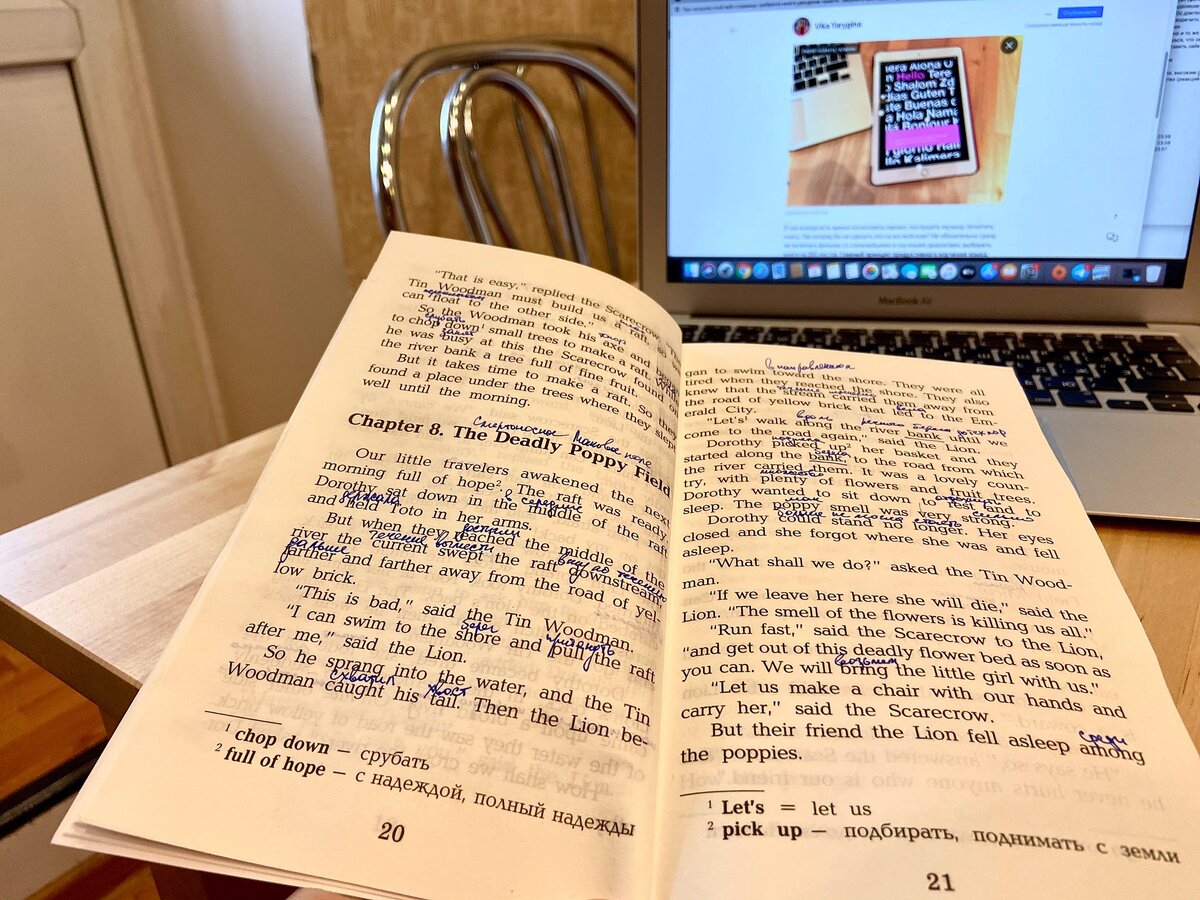 "That is easy," replied the Scarecrow. "The
Tin Woodman must build us a raft, so we
can float to the other side."
So the Woodman took his axe and began
to chop down¹ small trees to make a raft. While
he was busy at this the Scarecrow found on
the river bank a tree full of fine fruit.
But it takes time to make a raft. So they
found a place under the trees where they slept
well until the morning.
Смертоносное Маковое поле
Chapter 8. The Deadly Poppy Field
Our little travelers awakened the next
morning full of hope². The raft was ready.
в середине
Dorothy sat down in the middle of the raft
держала
and held Toto in her arms.
But when they reached the middle of the
течение
river the current swept the raft downstream,
дальше
farther and farther away from the road of yel-
low brick.
"This is bad," said the Tin Woodman.
берег
"I can swim to the shore and pull the raft
after me," said the Lion.
So he sprang into the water, and the Tin
схватил хвост
Woodman caught his tail. Then the Lion be-
¹ chop down — срубать
² full of hope — с надеждой, полный надежды
20
в направлении
gan to swim toward the shore. They were all
tired when they reached the shore. They also
knew that the stream carried them away from
the road of yellow brick that led to the Em-
erald City.
вдоль
"Let's¹ walk along the river bank until we
come to the road again," said the Lion.
Dorothy picked up² her basket and they
берег
started along the bank, to the road from which
the river carried them. It was a lovely coun-
множество
try, with plenty of flowers and fruit trees.
Dorothy wanted to sit down to rest and to
мак
sleep. The poppy smell was very strong.
Dorothy could stand no longer. Her eyes
closed and she forgot where she was and fell
asleep.
"What shall we do?" asked the Tin Wood-
man.
"If we leave her here she will die," said the
Lion. "The smell of the flowers is killing us all."
"Run fast," said the Scarecrow to the Lion,
"and get out of this deadly flower bed as soon as
возьмем
you can. We will bring the little girl with us."
"Let us make a chair with our hands and
carry her," said the Scarecrow.
среди
But their friend the Lion fell asleep among
the poppies.
¹ Let's = let us
² pick up — подбирать, поднимать с земли
21
Vika Yarygina
Опубликовать
Hello Tere
Shalom
Guten T
Buenas
Hola
Bonjour
Kalimera
MacBook Air